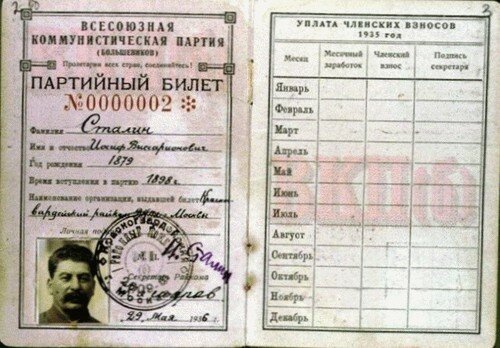 ВСЕСОЮЗНАЯ
КОММУНИСТИЧЕСКАЯ ПАРТИЯ
(БОЛЬШЕВИКОВ)
Пролетарии всех стран, соединяйтесь!
ПАРТИЙНЫЙ БИЛЕТ
№0000002
Фамилия Сталин
Имя и отчество Иосиф Виссарионович
Год рождения 1879
Время вступления в партию 1898 г.
Наименование организации, выдавшей билет Красно-
гвардейский райком Москвы
Личная подпись И. Сталин
Секретарь Райкома
29 мая 1936 г.
3
УПЛАТА ЧЛЕНСКИХ ВЗНОСОВ
1935 год
Месяц Месячный заработок Членский взнос Подпись секретаря
Январь
Февраль
Март
Апрель
Май
Июнь
Июль
Август
Сентябрь
Октябрь
Ноябрь
Декабрь
ВКП(б)